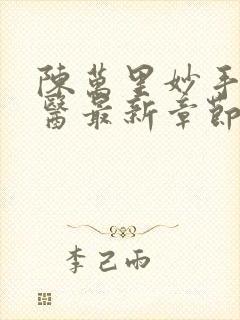 陳萬里妙手
醫最新章節
李己雨